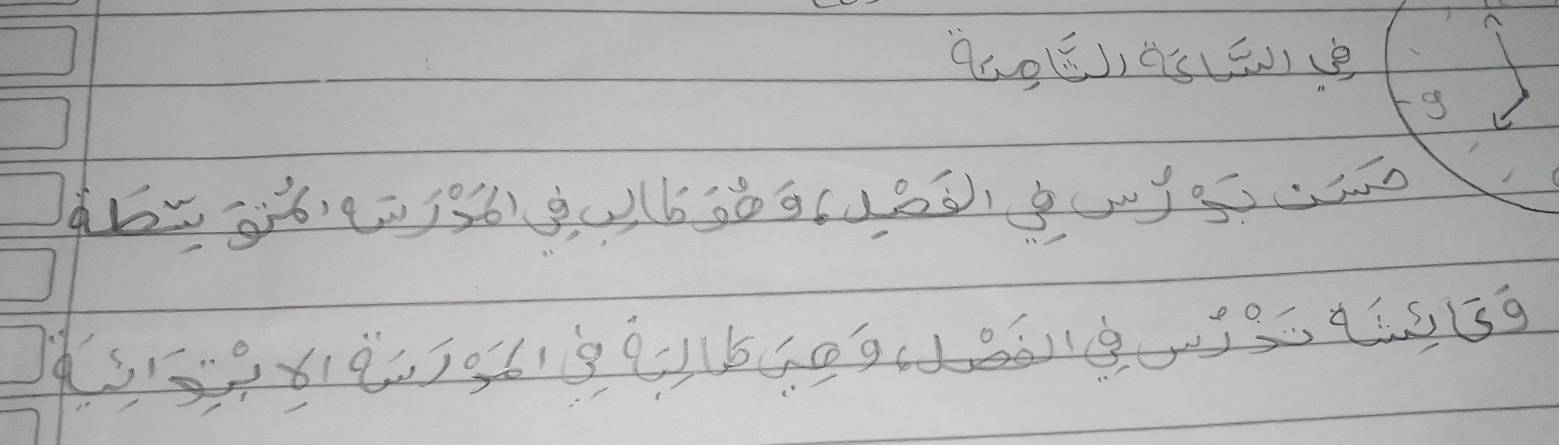 فِي السَّاعَةِ الثَّامِنَةِ
حَسَن يَدْرُسُ فِي الفَصْلِ، وَهُوَ طَالِب فِي المَدْرَسَةِ المُتَوَسِّطَةِ
وَعَائِشَة تَدْرُسُ فِي الفَصْلِ، وَهِيَ طَالِبَةٌ فِي المَدْرَسَةِ الاِبْتِدَائِيَّةِ